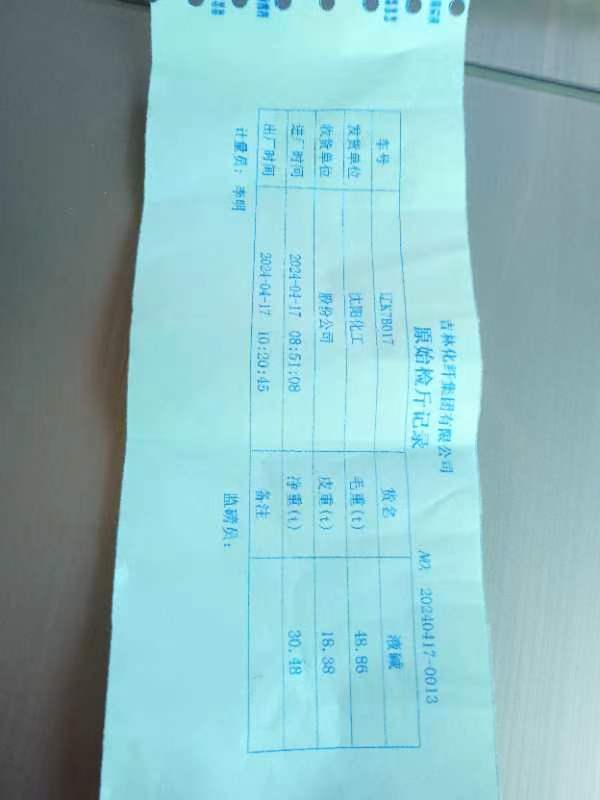 吉林化纤集团有限公司
原始检斤记录
NO. 20240417-0013
车号 辽K7B017 货名 液碱
发货单位 沈阳化工 毛重(t) 48.86
收货单位 股份公司 皮重(t) 18.38
进厂时间 2024-04-17 08:51:08 净重(t) 30.48
出厂时间 2024-04-17 10:20:45 备注
计量员: 李明 监磅员: